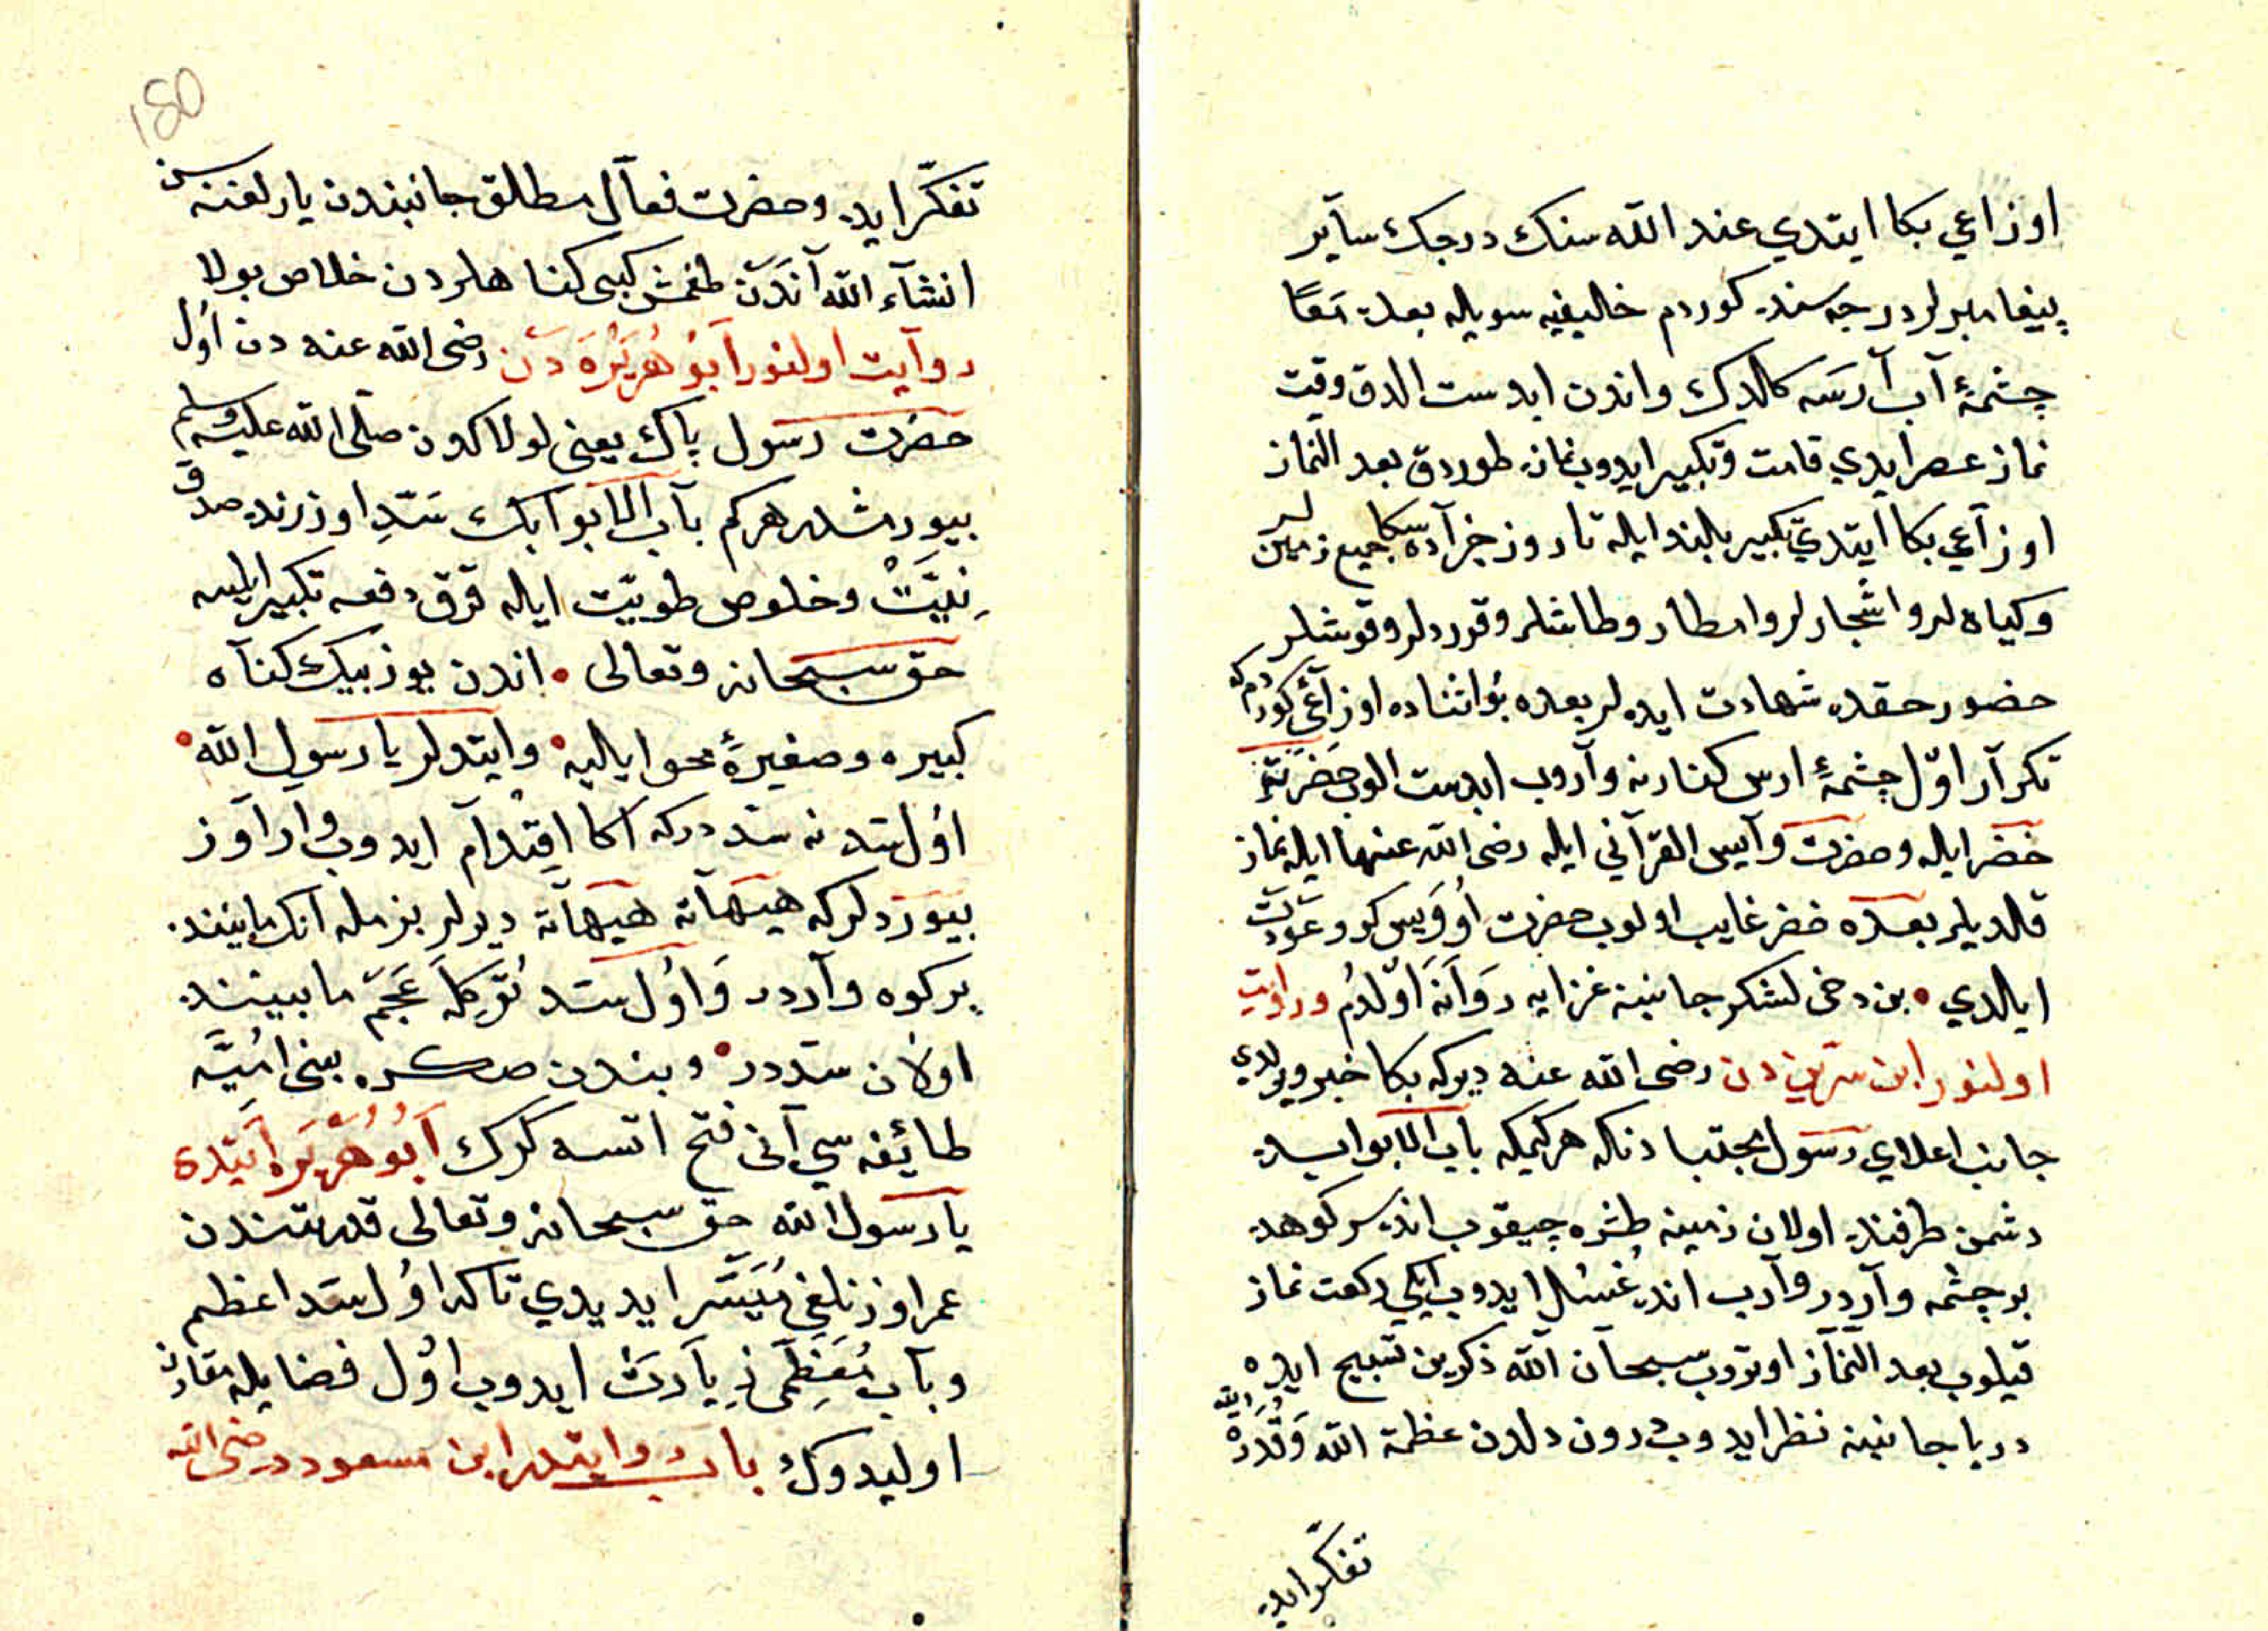 اوزاعي بكا ايتدي عند الله سنك درجك سآير
پيغامبرلر درجه سنده كوردم خاليفيه سويله بعده مَعًا
چشمۀ آب آرسَه كالدك واندن ابدست الدق وقت
نماز عصر ايدي قامت وتكبير ايدوب نمازه طوردق بعد النماز
اوزآعي بكا ايتدي تكبير بلند ايله تا روز جزآده سكا جميع زمينلر
وكياه لر واشجارلر وامطار وطاشلر وقوردلر وقوشلر
حضور حقده شهادت ايده لر بعده بو اثناده اوزآعي كوردم كه
تكرآر اوّل چشمۀ ارس كنارنه وآروب ابدست الوب حضرت
خضر ايله وحضرت وآيس القرآني ايله رضى الله عنهما ايله نماز
قلديلر بعده خضر غايب اولوب حضرت اُوَويس كرو عَوْدَت
ايالدي • بن دخى لشكر جانبنه غزايه رَوَانَه اَولدُم وراوَيت
اولنور ابن سرين دن رضى الله عنه ديركه بكا خبر ويرلدي
جانب اعلاي رسول مجتبا دنكه هركيمكه باب الابوابده
دشمن طرفنده اولان زمينه طشره چيقوب انده سركوهده
بر چشمه وآردر وآرب انده غُسُل ايدوب ايكي ركعت نماز
قيلوب بعد النمآز اوتروب سبحآن الله ذكرين تسبيح ايده
دريا جانبنه نظر ايدوب درون دلدن عظمة الله وَقُدرَة الله
تفكّر ايده
180
تفكّر ايده وحضرت فعآل مطلق جانبندن يارلغنه سن
انشآء الله آنَدَن طغمش كبى كناهلردن خلاص بولا
روآيت اولنور اَبُو هُرَيْرَه دَن رضى الله عنه دن اوُل
حضرت رسول پاك يعنى لولاكدن صلى الله عليه وسلم
بيورمشدر هركم بآب الابوابك سَدِّ اوزرنده صدق
نِيَّتْ وخلوص طويّت ايله قرق دفعه تكبير ايليسه
حق سبحانه وتعالى • اندن يوز بيك كنآه
كبيره وصغيرۀ محو ايليه • وايتدلر يا رسول الله •
اوُل سَد نه سَد دركه اكا اِقْدَآم ايدوب وارآوز
بيوردلركه هيهآته هيهآته ديرلر بزمله آنك مابينده
بر كوه وآردر وَاوُل سَد تُركلَه عَجَمَ مابيننده
اوُلان سَددر • وبندن صكره بنى اُمَيَّه
طائفه سي آنى فتح اتسه كرك اَبُو هُرَيْرَه اَيَتدى
يا رسول الله حق سبحانه وتعالى قدرتندن
عمر اوزنلغى مُيَسَّر ايديدي تاكه اوُل سَد اعظم
وبآب مُعَظَمى زِيَارَتْ ايدوب اوُل فضايله مقارن
اوليدوك باب روايتدر ابن مسعوددر رضى الله